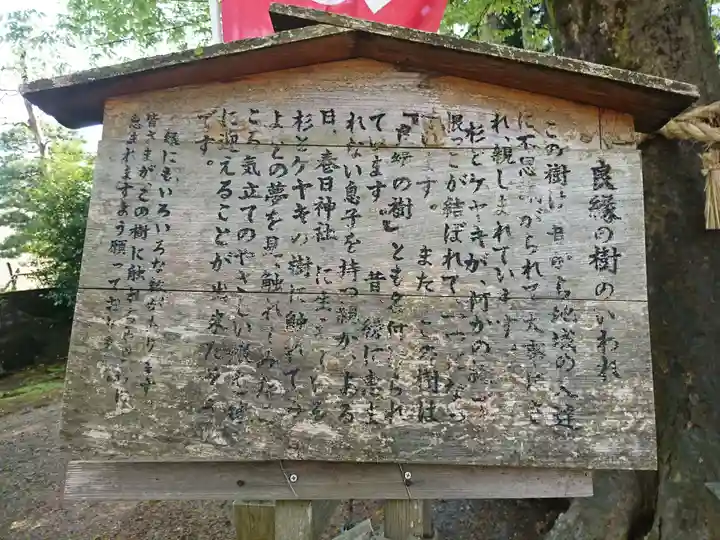 良縁の樹のいわれ
この樹は、昔から地域の人達
に不思議がられて大事にさ
れ親しまれています。
杉とケヤキが、何かの
根っこが結ばれて、一つになっ
ています。また、この樹は
『良縁の樹』とも名付けられ
ています。昔、縁に恵ま
れない息子を持つ親が、ある
日、春日神社に生えている
杉とケヤキの樹に触れてう
よとの夢を見、触れてみたと
ころ気立てのやさしい嫁を
に迎えることが出来たそう
です。
様にもいろいろな
皆さまが、この樹に触れ
恵まれますよう願っており